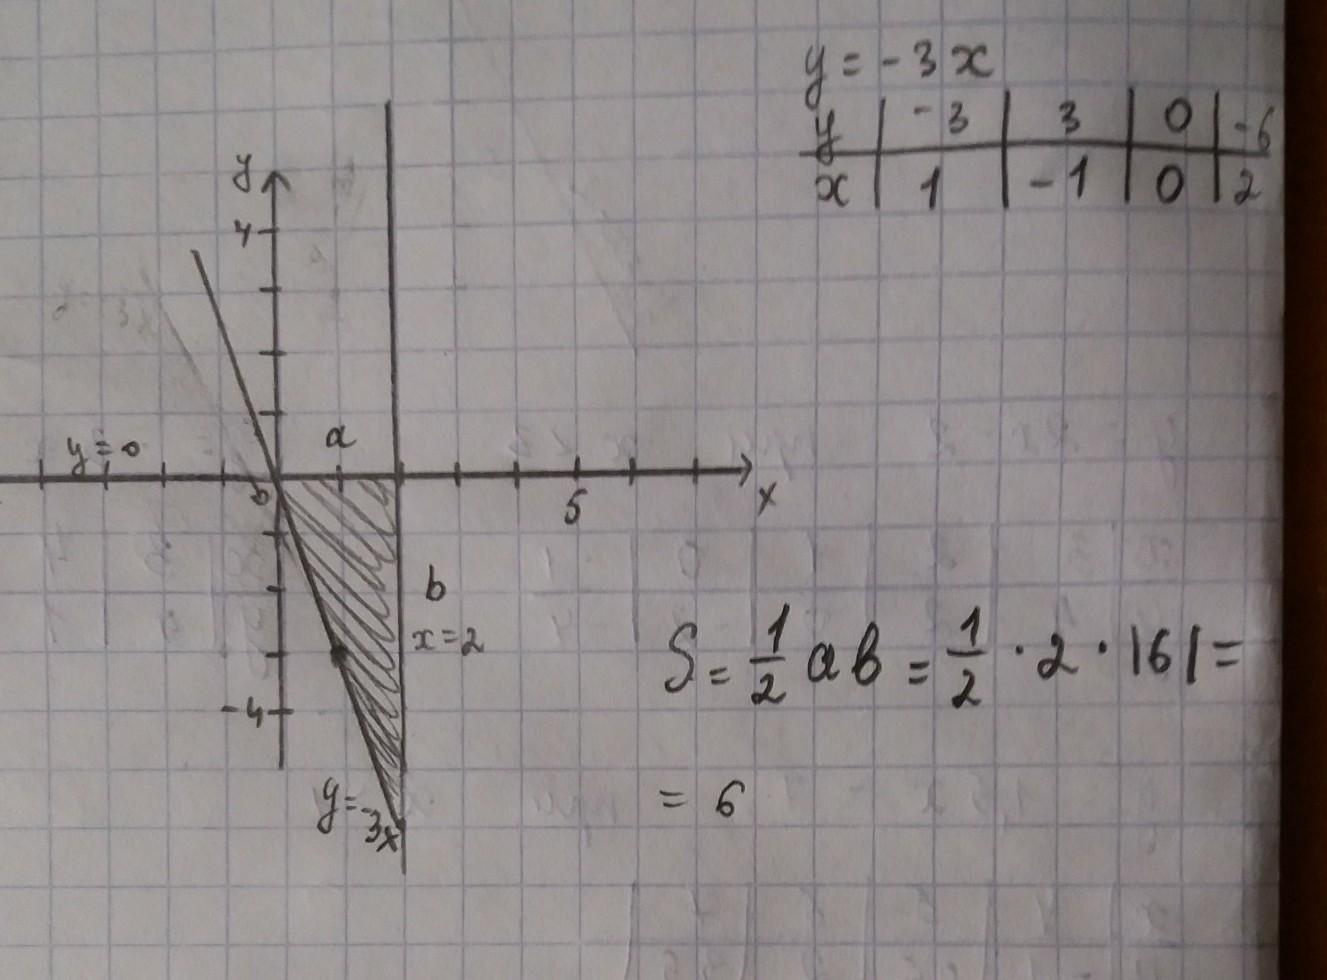 y = -3x
y | -3 | 3 | 0 | -6
x | 1 | -1 | 0 | 2
y
4
y=0
a
0
5
x
b
x=2
-4
y=-3x
S = 1/2 ab = 1/2 · 2 · |6| =
= 6